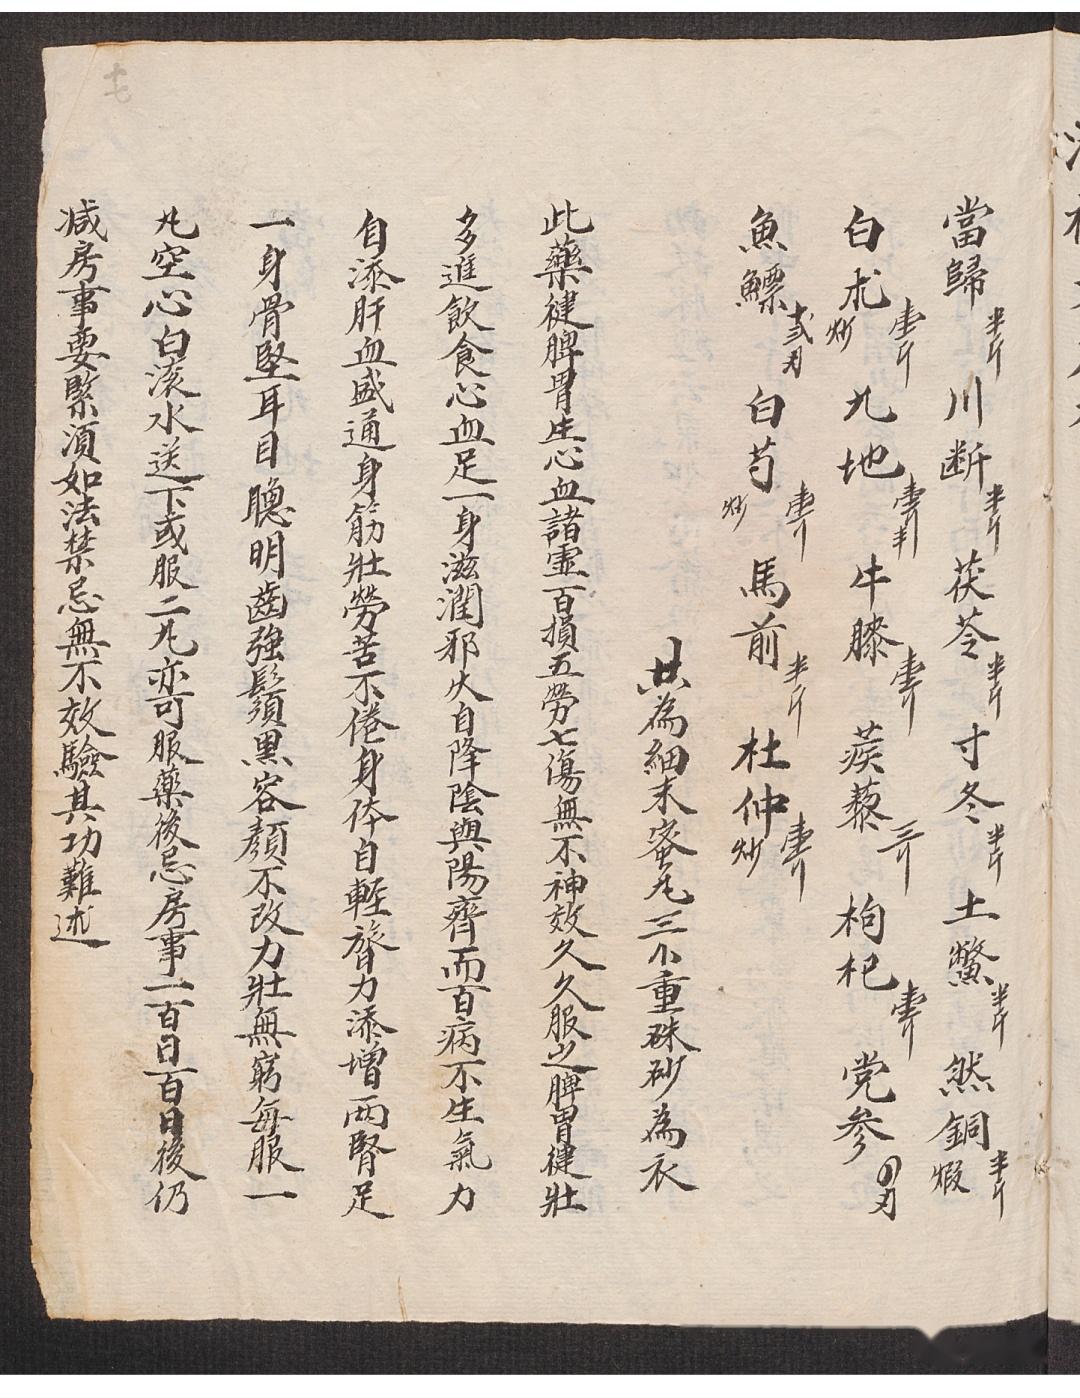 當歸半斤 川断半斤 茯苓半斤 寸冬半斤 土鱉半斤 然銅煆半斤
白朮炒壹斤 九地壹斤半 牛膝壹斤 蒺藜三斤 枸杞壹斤 党参四刃
魚鰾十弍刃 白芍炒壹斤 馬前半斤 杜仲炒壹斤
共為細末蜜丸三个重硃砂為衣
此藥健脾胃生心血諸虛百損五勞七傷無不神效久久服之脾胃健壯
多進飲食心血足一身滋潤邪火自降陰與陽齊而百病不生氣力
自添肝血盛通身筋壯勞苦不倦身体自輕膂力添增两腎足
一身骨堅耳目聰明齒強鬚黒容顏不改力壯無窮每服一
丸空心白滚水送下或服二丸亦可服藥後忌房事一百日百日後仍
减房事要緊須如法禁忌無不效驗其功難述